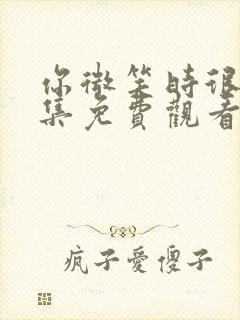 你微笑時很
集免費觀看
疯子愛傻子